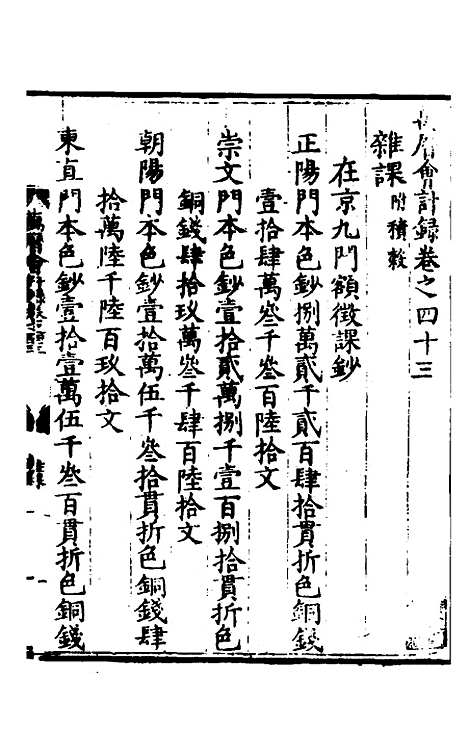 萬曆會計錄卷之四十三
雜課附積穀
在京九門額徵課鈔
正陽門本色鈔捌萬貳千貳百肆拾貫折色銅錢
壹拾肆萬叁千叁百陸拾文
崇文門本色鈔壹拾貳萬捌千壹百捌拾貫折色
銅錢肆拾玖萬叁千肆百陸拾文
朝陽門本色鈔壹拾萬伍千叁拾貫折色銅錢肆
拾萬陸千陸百玖拾文
東直門本色鈔壹拾壹萬伍千叁百貫折色銅錢